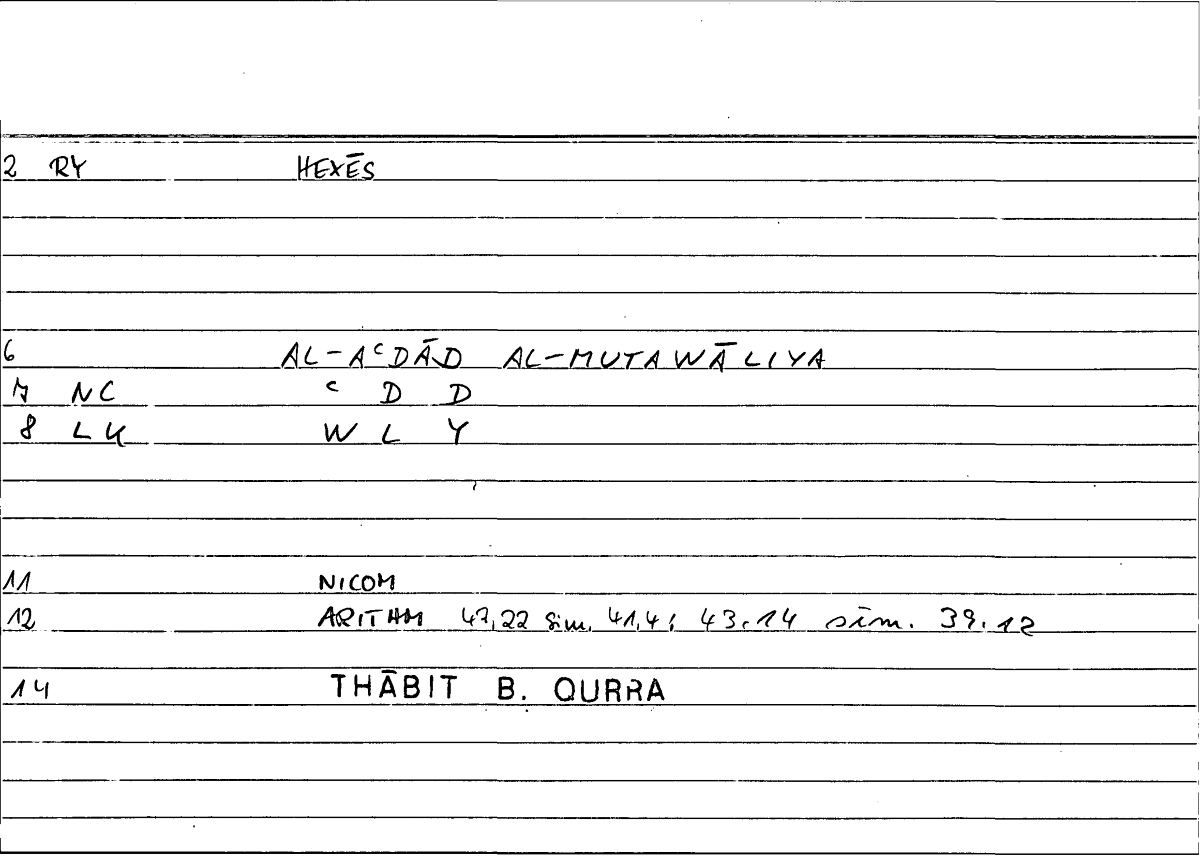 2 RY HEXĒS
6 AL-AᶜDĀD AL-MUTAWĀLIYA
7 NC ᶜ D D
8 LK W L Y
11 NICOM
12 ARITHM 47,22 sim. 41,4; 43.14 sim. 39.12
14 THĀBIT B. QURRA